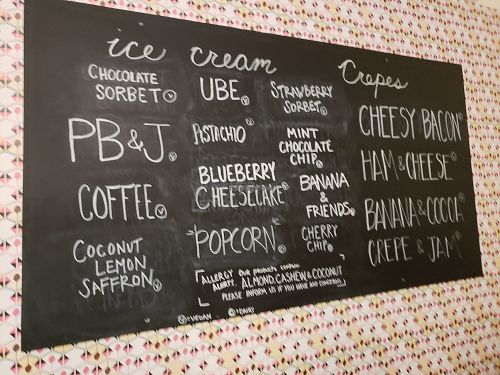 ice cream
CHOCOLATE
SORBET Ⓥ
PB&J Ⓥ
COFFEE Ⓥ
COCONUT
LEMON
SAFFRON Ⓥ
UBE
PISTACHIO
BLUEBERRY
CHEESECAKE
POPCORN
STRAWBERRY
SORBET
MINT
CHOCOLATE
CHIP
BANANA
&
FRIENDS
CHERRY
CHIP
ALLERGY ALERT: OUR PRODUCTS CONTAIN
ALMOND, CASHEW & COCONUT
PLEASE INFORM US IF YOU HAVE ANY CONCERNS
Ⓥ=VEGAN
Ⓓ=DAIRY
Crepes
CHEESY BACON
HAM & CHEESE
BANANA & COCOA
CREPE & JAM